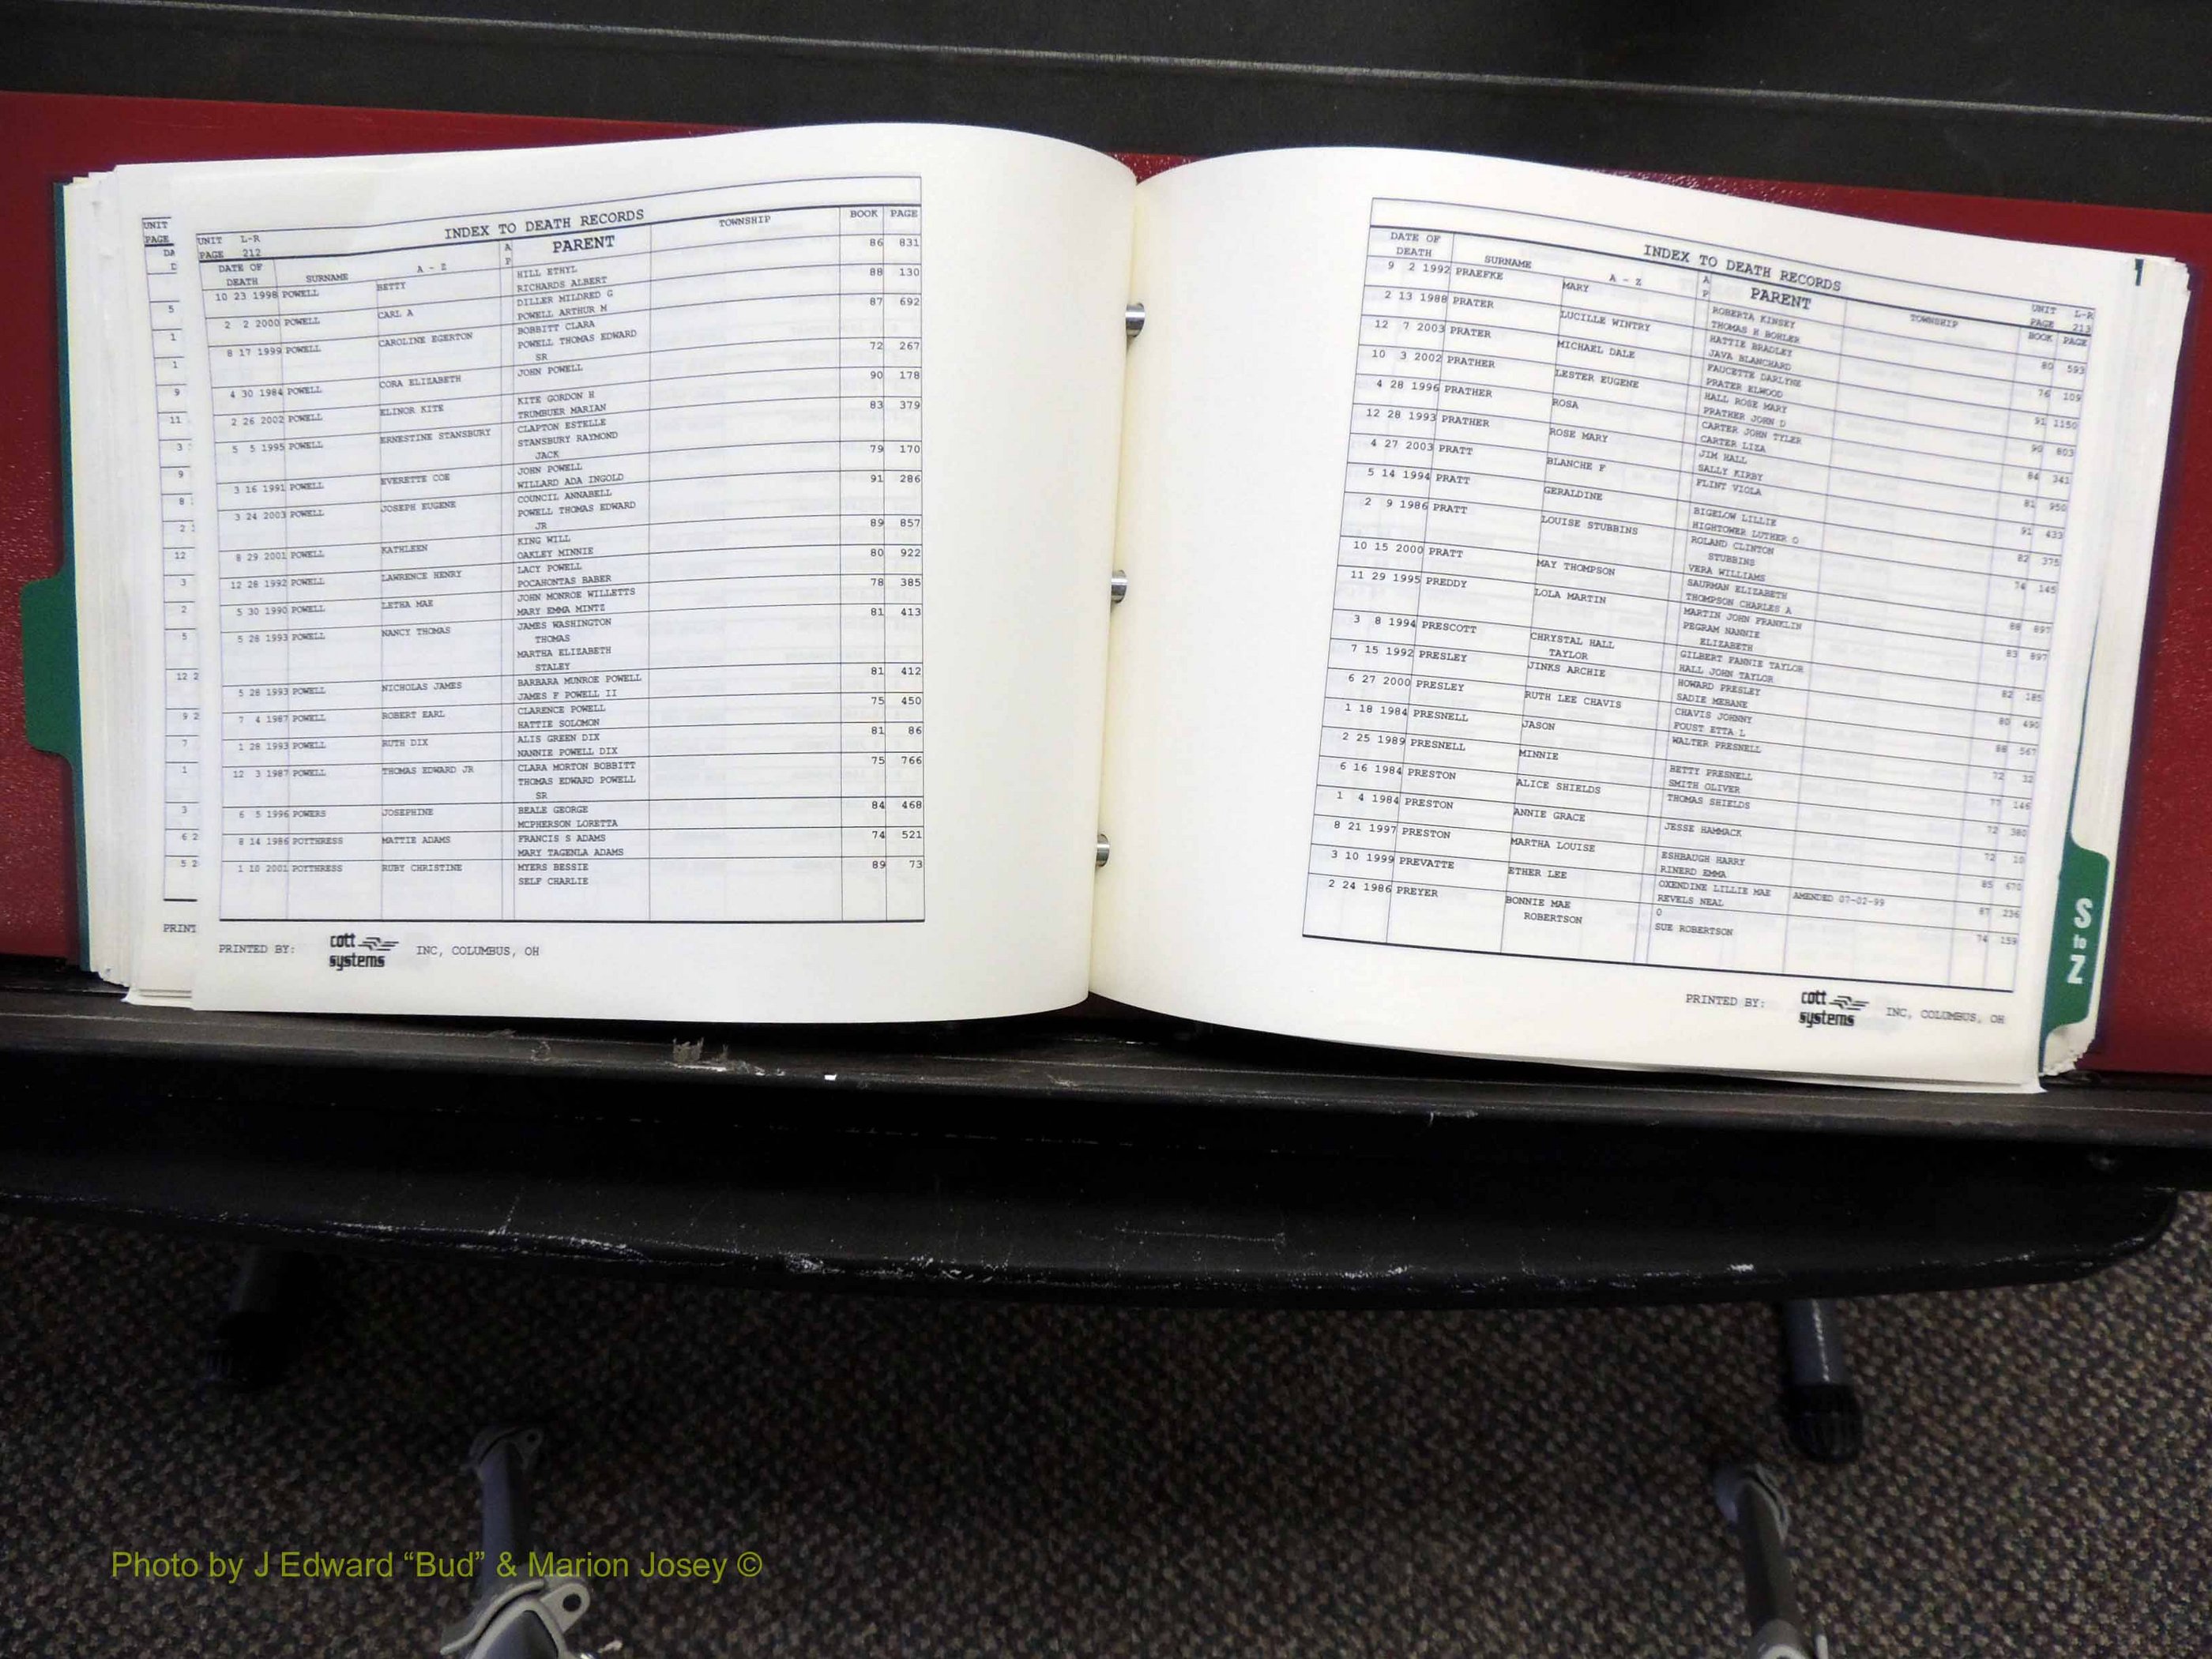 UNIT
PAGE
DA
D
5
1
1
9
11
3
9
8
2
12
3
2
5
12 2
9 2
7
1
3
6 2
5 2
PRINT
INDEX TO DEATH RECORDS
UNIT L-R
PAGE 212
DATE OF DEATH SURNAME A - Z A P PARENT TOWNSHIP BOOK PAGE
10 23 1998 POWELL BETTY HILL ETHYL 86 831
RICHARDS ALBERT
2 2 2000 POWELL CARL A DILLER MILDRED G 88 130
POWELL ARTHUR M
8 17 1999 POWELL CAROLINE EGERTON BOBBITT CLARA 87 692
POWELL THOMAS EDWARD
SR
4 30 1984 POWELL CORA ELIZABETH JOHN POWELL 72 267
2 26 2002 POWELL ELINOR KITE KITE GORDON H 90 178
TRUMBUER MARIAN
5 5 1995 POWELL ERNESTINE STANSBURY CLAPTON ESTELLE 83 379
STANSBURY RAYMOND
JACK
3 16 1991 POWELL EVERETTE COE JOHN POWELL 79 170
WILLARD ADA INGOLD
3 24 2003 POWELL JOSEPH EUGENE COUNCIL ANNABELL 91 286
POWELL THOMAS EDWARD
JR
8 29 2001 POWELL KATHLEEN KING WILL 89 857
OAKLEY MINNIE
12 28 1992 POWELL LAWRENCE HENRY LACY POWELL 80 922
POCAHONTAS BABER
5 30 1990 POWELL LETHA MAE JOHN MONROE WILLETTS 78 385
MARY EMMA MINTZ
5 28 1993 POWELL NANCY THOMAS JAMES WASHINGTON 81 413
THOMAS
MARTHA ELIZABETH
STALEY
5 28 1993 POWELL NICHOLAS JAMES BARBARA MUNROE POWELL 81 412
JAMES F POWELL II
7 4 1987 POWELL ROBERT EARL CLARENCE POWELL 75 450
HATTIE SOLOMON
1 28 1993 POWELL RUTH DIX ALIS GREEN DIX 81 86
NANNIE POWELL DIX
12 3 1987 POWELL THOMAS EDWARD JR CLARA MORTON BOBBITT 75 766
THOMAS EDWARD POWELL
SR
6 5 1996 POWERS JOSEPHINE BEALE GEORGE 84 468
MCPHERSON LORETTA
8 14 1986 POYTHRESS MATTIE ADAMS FRANCIS S ADAMS 74 521
MARY TAGENLA ADAMS
1 10 2001 POYTHRESS RUBY CHRISTINE MYERS BESSIE 89 73
SELF CHARLIE
PRINTED BY: cott systems INC, COLUMBUS, OH
INDEX TO DEATH RECORDS
UNIT L-R
PAGE 213
DATE OF DEATH SURNAME A - Z A P PARENT TOWNSHIP BOOK PAGE
9 2 1992 PRAEFKE MARY ROBERTA KINSEY 80 593
THOMAS H BOHLER
2 13 1988 PRATER LUCILLE WINTRY HATTIE BRADLEY 76 109
JAVA BLANCHARD
12 7 2003 PRATER MICHAEL DALE FAUCETTE DARLYNE 91 1150
PRATER ELWOOD
10 3 2002 PRATHER LESTER EUGENE HALL ROSE MARY 90 803
PRATHER JOHN D
4 28 1996 PRATHER ROSA CARTER JOHN TYLER 84 341
CARTER LIZA
12 28 1993 PRATHER ROSE MARY JIM HALL 81 950
SALLY KIRBY
4 27 2003 PRATT BLANCHE F FLINT VIOLA 91 433
5 14 1994 PRATT GERALDINE BIGELOW LILLIE 82 375
HIGHTOWER LUTHER O
2 9 1986 PRATT LOUISE STUBBINS ROLAND CLINTON 74 145
STUBBINS
VERA WILLIAMS
10 15 2000 PRATT MAY THOMPSON SAURMAN ELIZABETH 88 897
THOMPSON CHARLES A
11 29 1995 PREDDY LOLA MARTIN MARTIN JOHN FRANKLIN 83 897
PEGRAM NANNIE
ELIZABETH
3 8 1994 PRESCOTT CHRYSTAL HALL GILBERT FANNIE TAYLOR 82 185
TAYLOR HALL JOHN TAYLOR
7 15 1992 PRESLEY JINKS ARCHIE HOWARD PRESLEY 80 490
SADIE MEBANE
6 27 2000 PRESLEY RUTH LEE CHAVIS CHAVIS JOHNNY 88 567
FOUST ETTA L
1 18 1984 PRESNELL JASON WALTER PRESNELL 72 32
2 25 1989 PRESNELL MINNIE BETTY PRESNELL 77 146
SMITH OLIVER
6 16 1984 PRESTON ALICE SHIELDS THOMAS SHIELDS 72 380
1 4 1984 PRESTON ANNIE GRACE JESSE HAMMACK 72 10
8 21 1997 PRESTON MARTHA LOUISE ESHBAUGH HARRY 85 670
RINERD EMMA
3 10 1999 PREVATTE ETHER LEE OXENDINE LILLIE MAE AMENDED 07-02-99 87 236
REVELS NEAL
2 24 1986 PREYER BONNIE MAE O 74 159
ROBERTSON SUE ROBERTSON
PRINTED BY: cott systems INC, COLUMBUS, OH
S to Z
Photo by J Edward “Bud” & Marion Josey ©